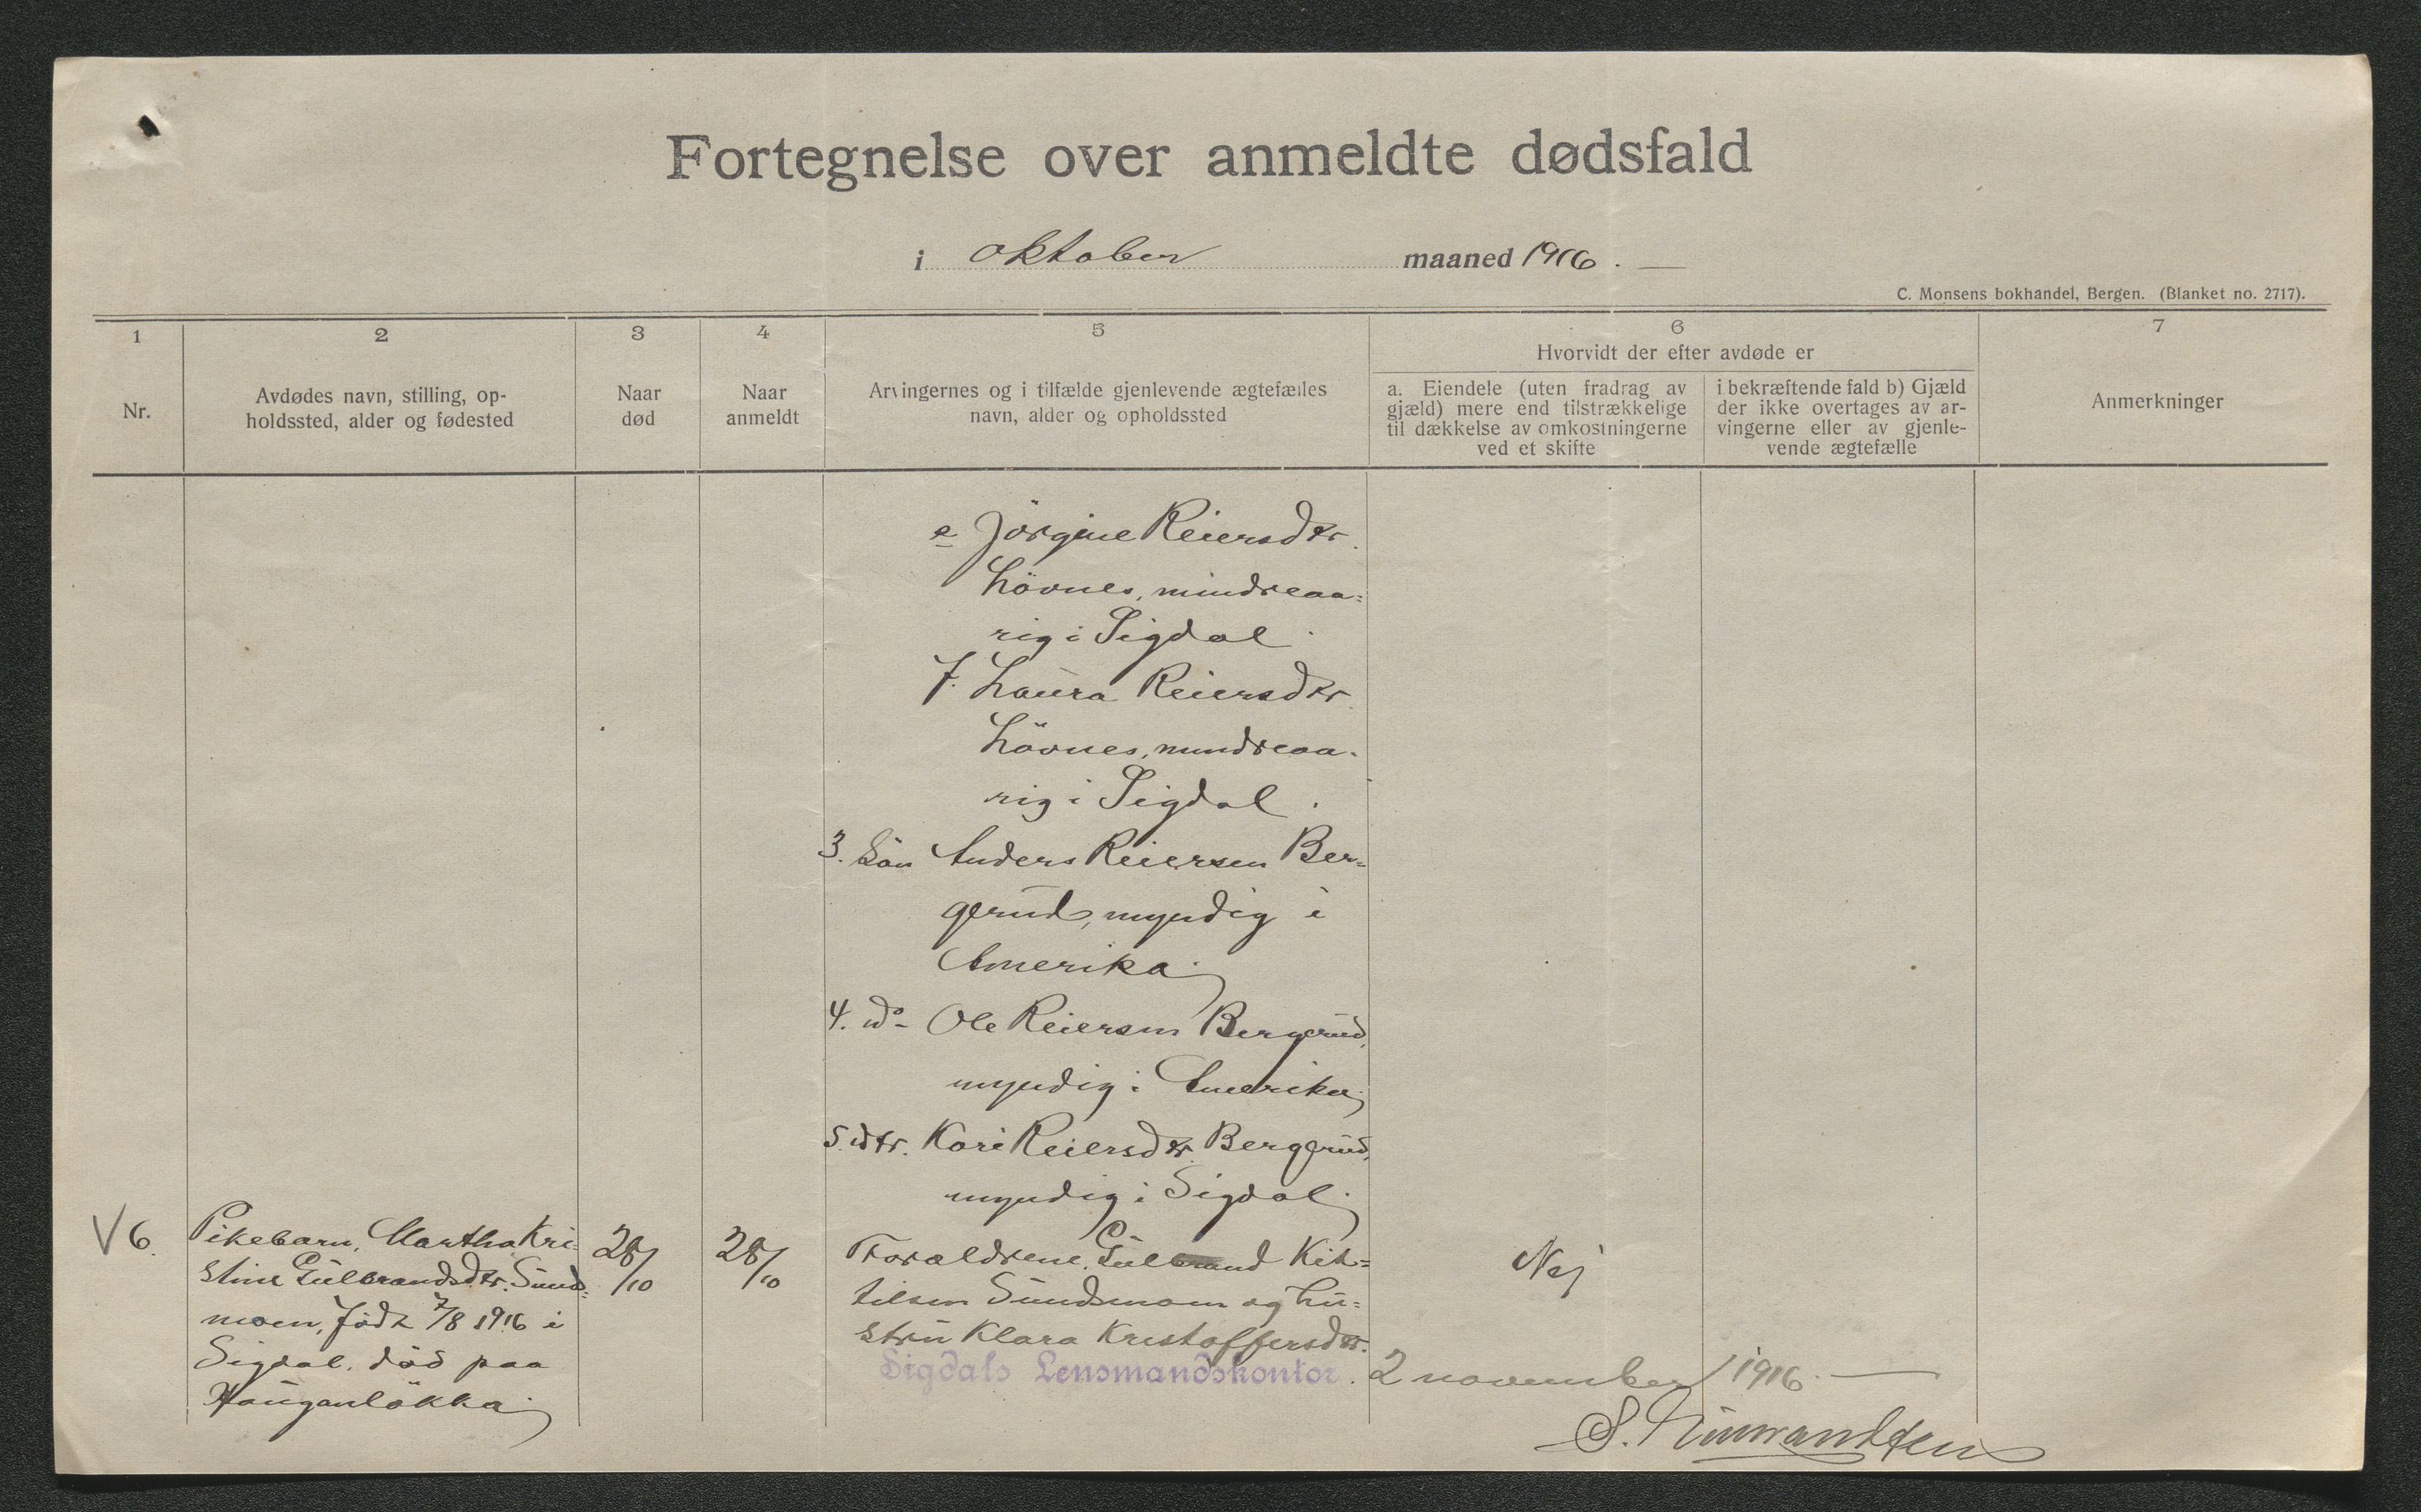 Fortegnelse over anmeldte dødsfald
i oktober maaned 1916. —
C. Monsens bokhandel, Bergen. (Blanket no. 2717).
1
2
3
4
5
6
7
Nr.
Avdødes navn, stilling, op-
holdssted, alder og fødested
Naar
død
Naar
anmeldt
Arvingernes og i tilfælde gjenlevende ægtefælles
navn, alder og opholdssted
Hvorvidt der efter avdøde er
a. Eiendele (uten fradrag av
gjæld) mere end tilstrækkelige
til dækkelse av omkostningerne
ved et skifte
i bekræftende fald b) Gjæld
der ikke overtages av ar-
vingerne eller av gjenle-
vende ægtefælle
Anmerkninger
e Jörgine Reiersdtr.
Lövnes, mindreaa=
rig i Sigdal.
f. Laura Reiersdtr.
Lövnes, mindreaa-
rig i Sigdal.
3. Sön Anders Reiersen Ber=
gerud, myndig i
Amerika
4. do- Ole Reiersen Bergerud,
myndig i Amerika
5. dtr. Kari Reiersdtr. Bergerud,
myndig i Sigdal
V 6.
Pikebarn, Martha Kri-
stine Gulbrandsdtr. Sund=
moen, född 7/8 1916 i
Sigdal. död paa
Hauganlökka
28/10
28/10
Forældrene, Gulbrand Kit=
tilsen Sundmoen og hu=
stru Klara Kristoffersdtr.
Nej
Sigdals Lensmandskontor. 2 november 1916. —